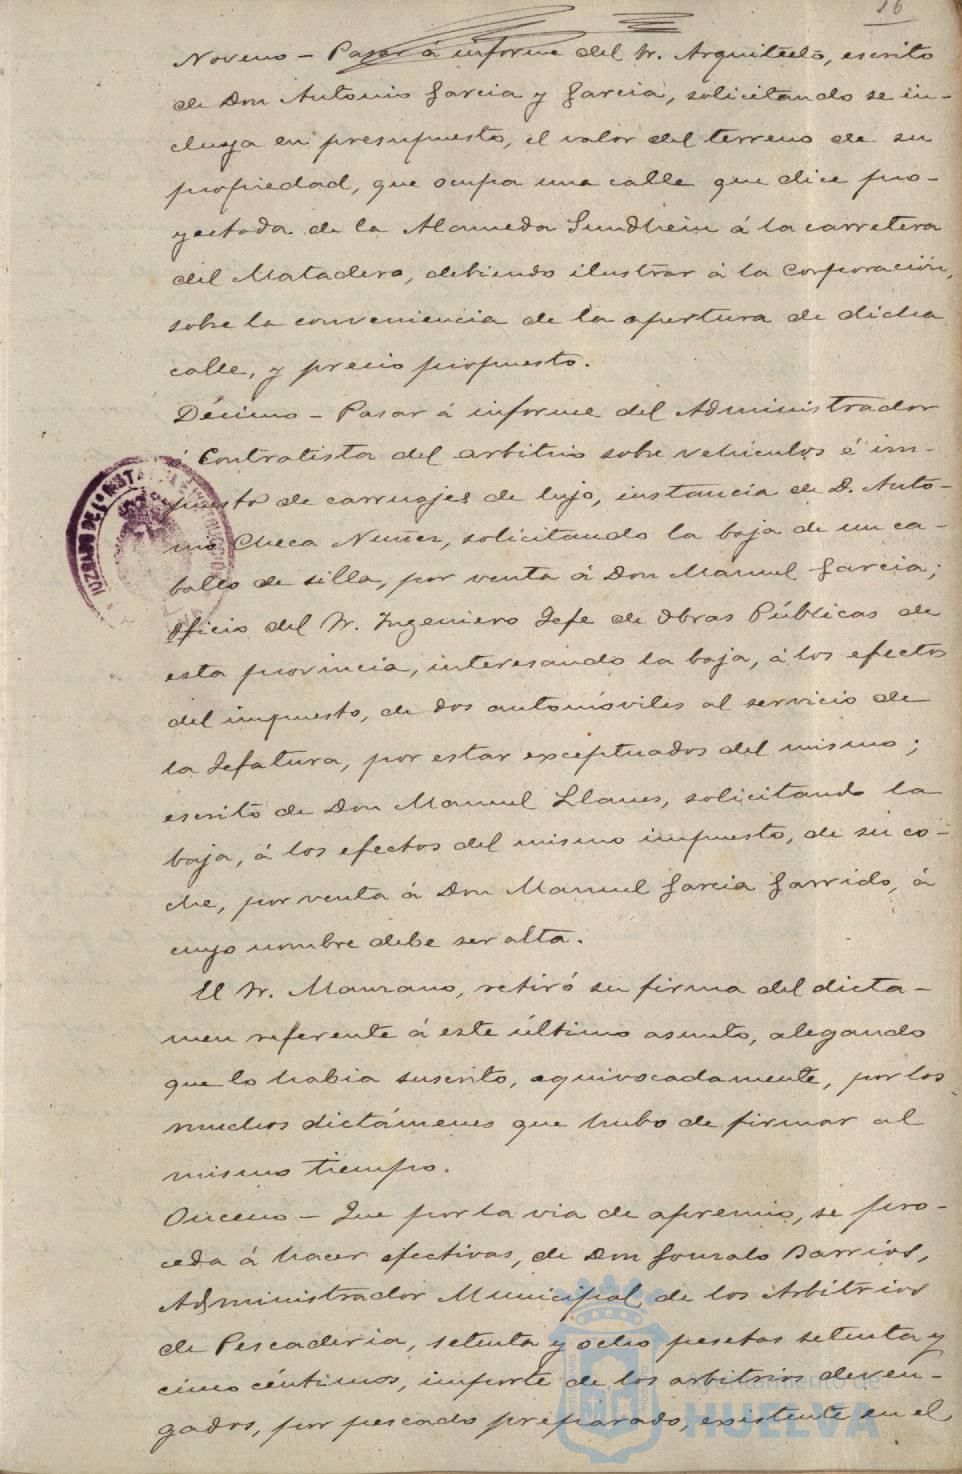 16
Noveno - Pasar á informe del Sr. Arquitecto, escrito
de Don Antonio Garcia y Garcia, solicitando se in-
cluya en presupuesto, el valor del terreno de su
propiedad, que ocupa una calle que dice pro-
yectada de la Alameda Sundhein á la carretera
del Matadero, debiendo ilustrar á la Corporación,
sobre la conveniencia de la apertura de dicha
calle, y precio propuesto.
Décimo - Pasar á informe del Administrador
Contratista del arbitrio sobre vehículos é im-
puesto de carruajes de lujo, instancia de D. Anto-
nio Checa Nuñez, solicitando la baja de un ca-
ballo de silla, por venta á Don Manuel Garcia;
Oficio del Sr. Ingeniero Jefe de Obras Públicas de
esta provincia, interesando la baja, á los efectos
del impuesto, de dos automóviles al servicio de
la Jefatura, por estar exceptuados del mismo;
escrito de Don Manuel Llanes, solicitando la
baja, á los efectos del mismo impuesto, de su co-
che, por venta á Don Manuel Garcia Garrido, á
cuyo nombre debe ser alta.
El Sr. Manzano, retiró su firma del dicta-
men referente á este último asunto, alegando
que lo habia suscrito, equivocadamente, por los
muchos dictámenes que hubo de firmar al
mismo tiempo.
Onceno - Que por la via de apremio, se pro-
ceda á hacer efectivas, de Don Gonzalo Barrios,
Administrador Municipal de los Arbitrios
de Pescaderia, setenta y ocho pesetas setenta y
cinco céntimos, importe de los arbitrios deven-
gados, por pescado preparado, existente en el
JUZGADO DE 1ª INSTANCIA E INSTRUCCION
Ayuntamiento de
HUELVA